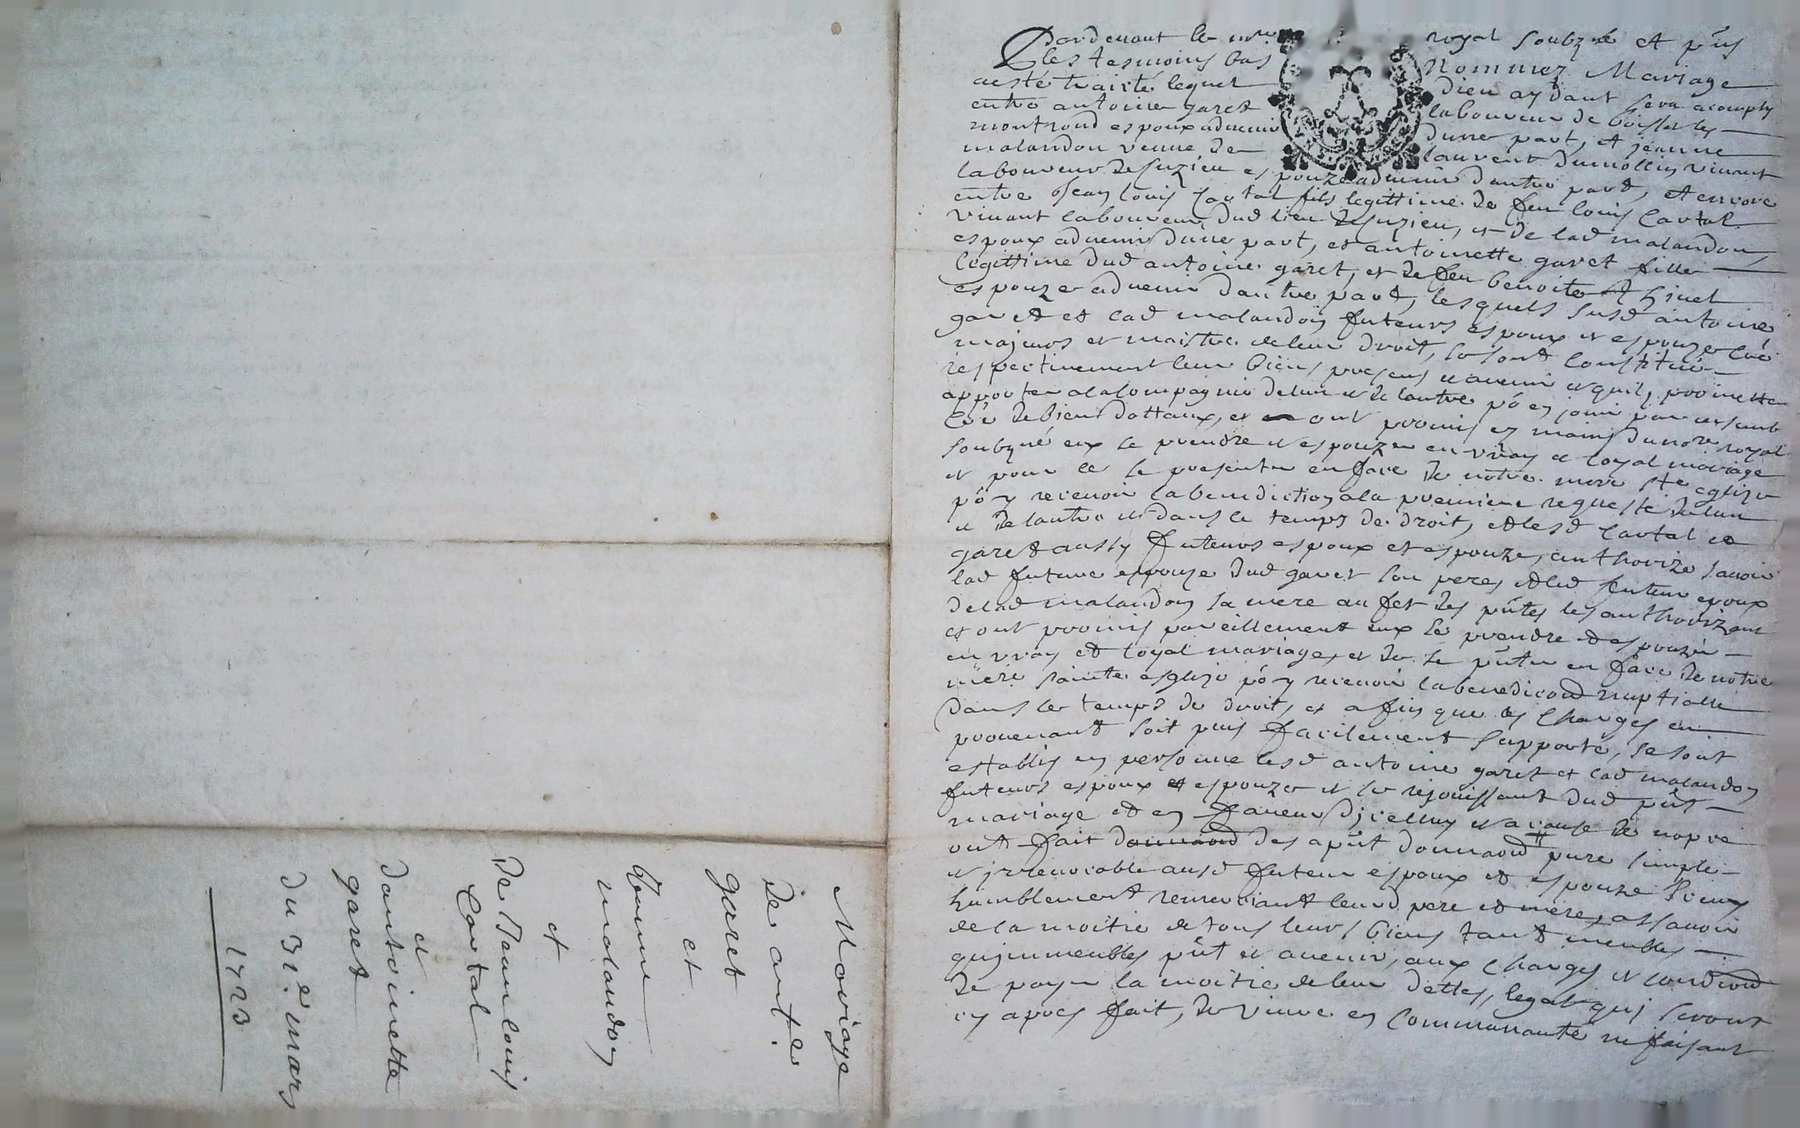 Mariage
de ant.e
garet
et
Jeanne
malandon
et
de Jean louis
Cartal
et
dantoinette
garet
du 31.e mars
1723
Pardevant le no.re royal soubz.né et p̂ns
les tesmoins bas Nommez Mariage
aesté traité lequel Dieu aydant sera acomply
entre antoine garet laboureur de boisset les
montrond espoux advenir dune part, et jeanne
malandon veuve de laurent dumollin vivant
laboureur de suzieu espouze advenir dautre part, et encore
entre Jean louis Cartal fils legittime de feu louis Cartal
vivant laboureur dud lieu de suzieu, et de lad malandon
espoux advenir dune part, et antoinette garet fille
legittime dud antoine garet, et de feu benoite
espouze advenir dautre part, lesquels susd antoine
garet et lad malandon futeurs espoux et espouze
majeurs et maistre de leur droit, se sont constitué
respectivement leur biens presens et avenir et quils promettent
apporter a la compagnie de lun et de lautre pô en jouir par
de biens dottaux, et ont promis ez mains du no.re royal
soubzné eux se prendre et espouzer en vray et loyal mariage
et pour ce se presenter en face de notre mere Ste eglize
pô y recevoir la benediction a la premiere requeste de lun
et de lautre et dans le temps de droit, et lesd Cartal et
garet aussy futeurs espoux et espouze, authorizé savoir
lad future espouze dud garet son pere, et led futeur epoux
de lad malandon sa mere au fet des p̂ntes les authorizant
et ont promis pareillement eux se prendre et espouzer
en vray et loyal mariage, et de se p̂nter en face de notre
mere sainte esglize pô y recevoir la benediction nuptialle
dans le temps de droit, et afin que les charges en
provenant soit puis facilement supporté, se sont
establis en personne lesd antoine garet et lad malandon
futeurs espoux et espouze et se rejouissant dud p̂nt
mariage et en faveur dicelluy et a cause de nopce
ont fait donnaon des ap̂nt donnaon pure simple
et jrrevocable ausd futeur espoux et espouze
humblement remerciant leurd pere et mere, assavoir
de la moitie de tous leurs biens tant meubles
qujmmeubles p̂nt et avenir, aux charges et condiond
de payer la moitie de leur dettes, legat quj seront
cy apres fait, de vivre en Communauté ne faisant